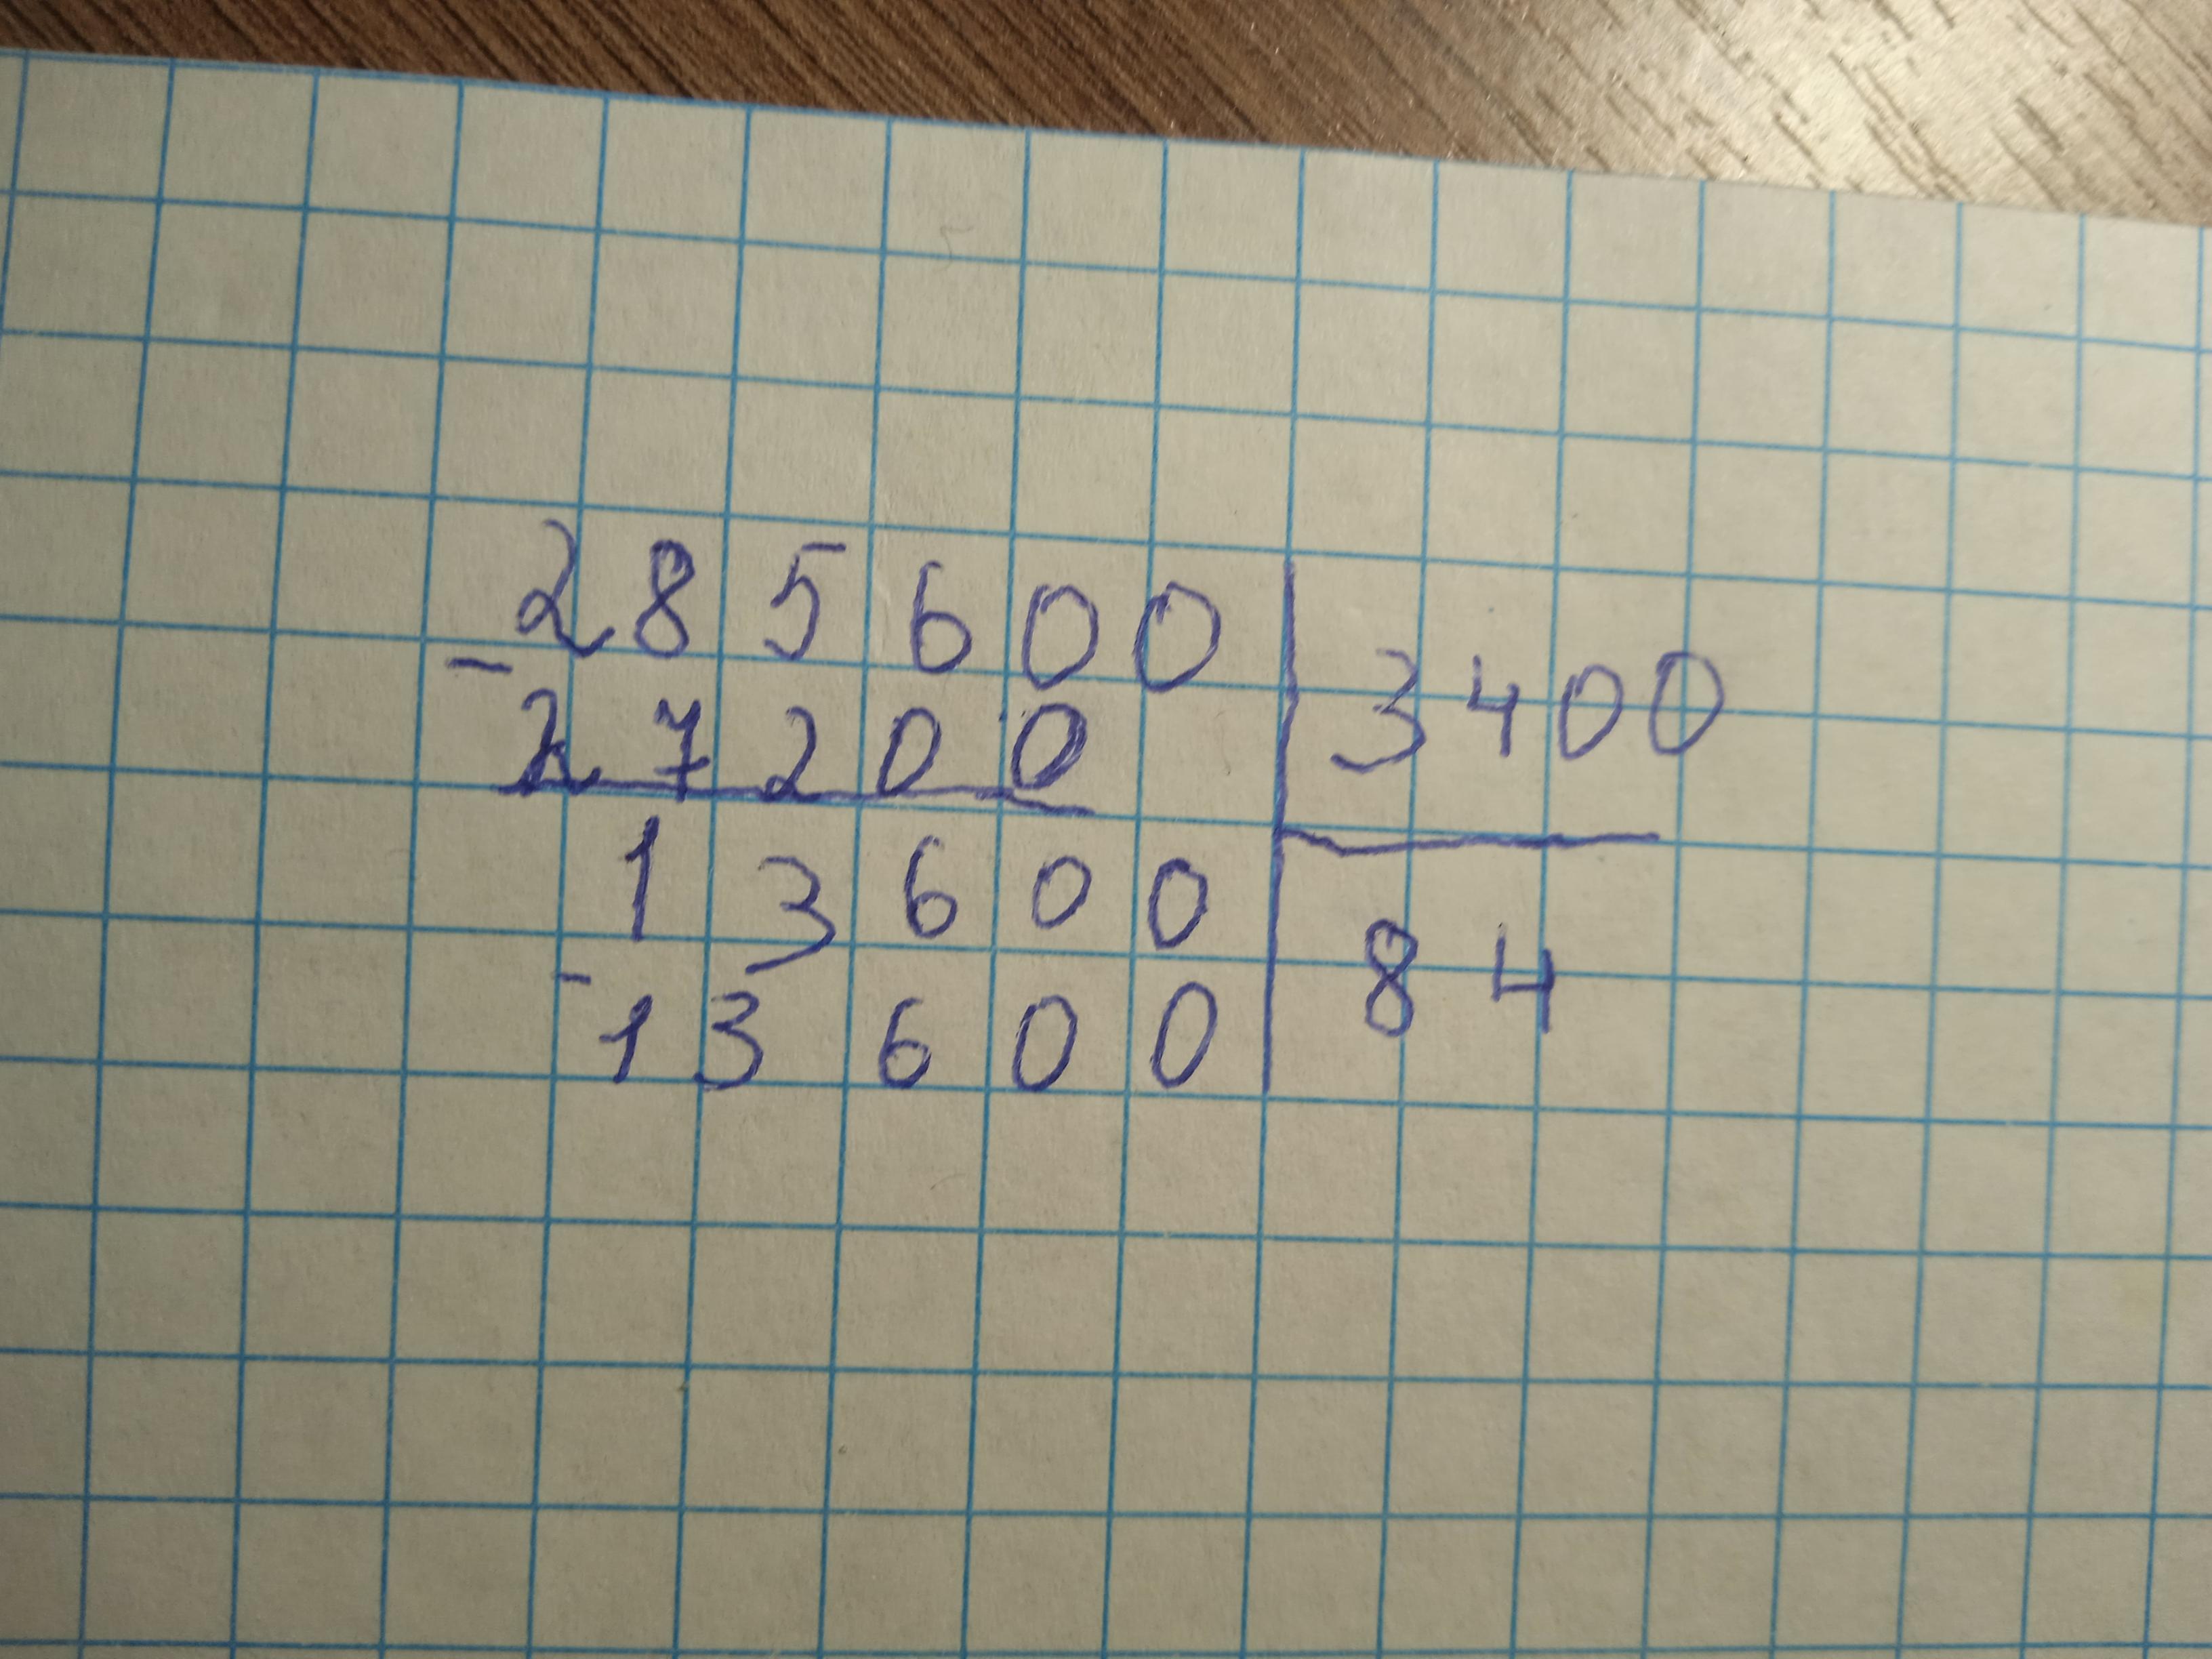 285600
3400
- 27200
13600
84
- 13600